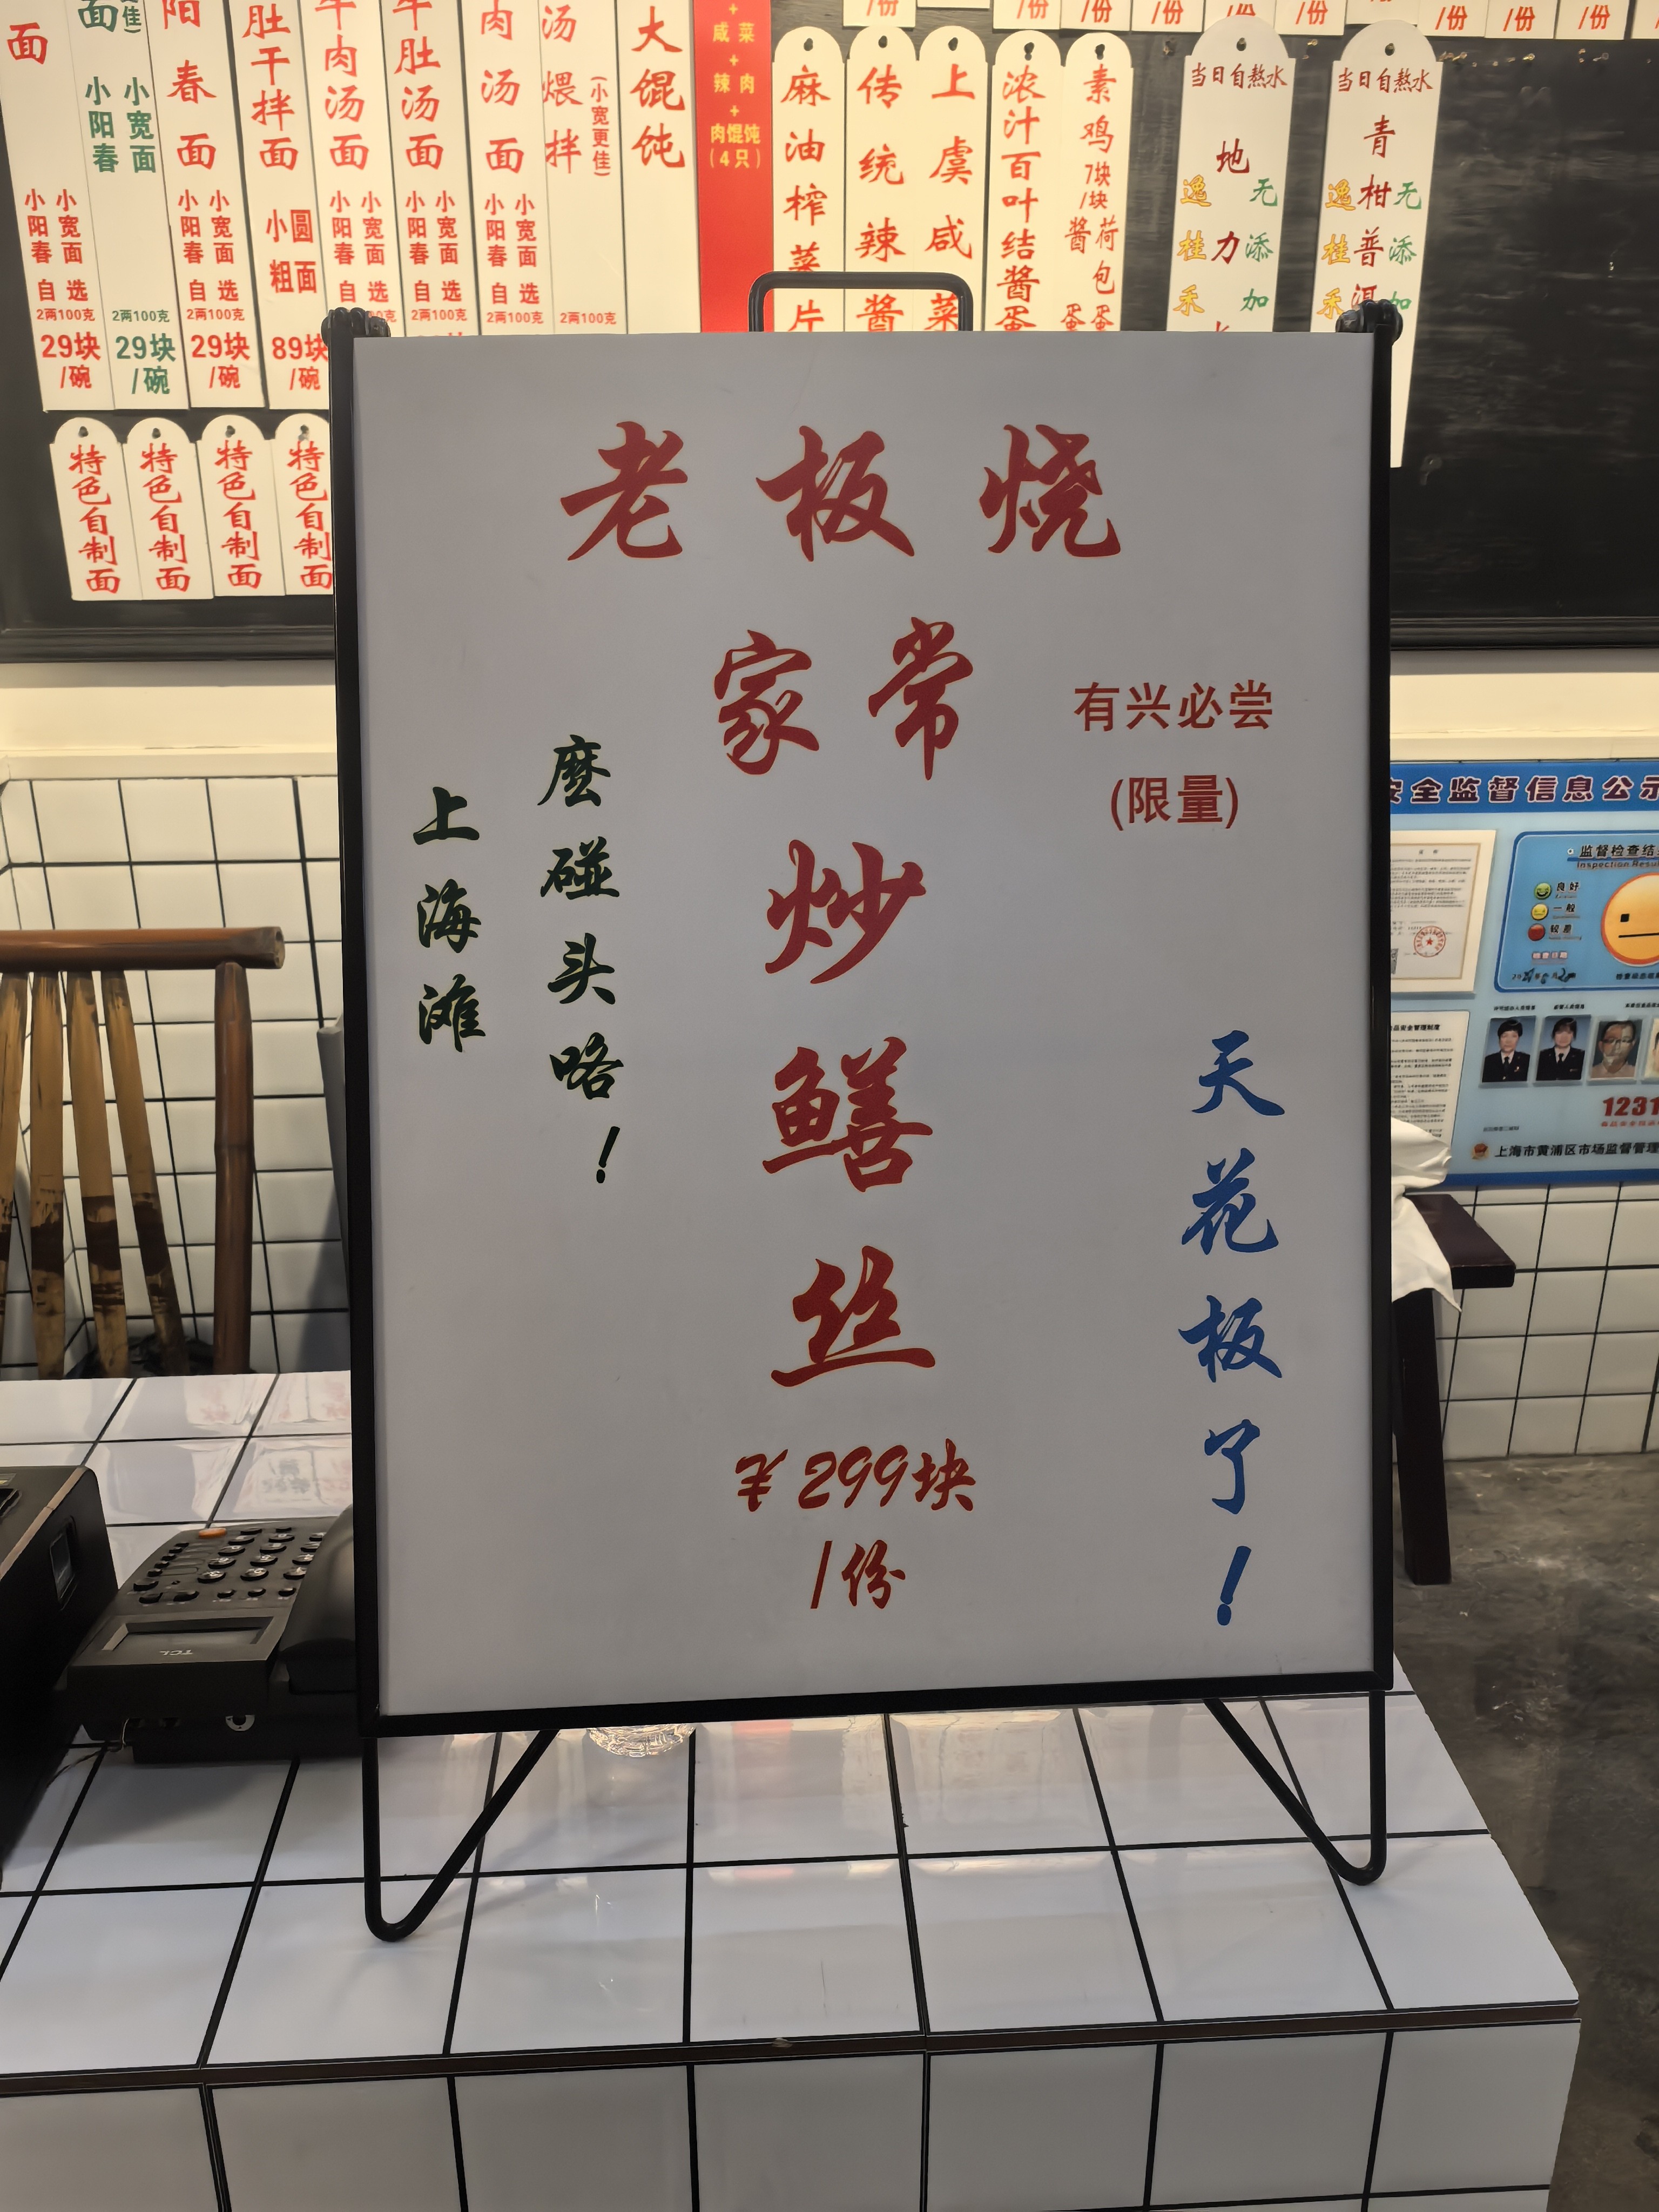 老板烧
家常
炒
鳝
丝
￥299块
/份
有兴必尝
(限量)
上海滩
麽碰头咯！
天花板了！
面
小阳春
小宽面
自选
2两100克
29块
/碗
面
小阳春
小宽面
2两100克
29块
/碗
阳春面
小阳春
小宽面
自选
2两100克
29块
/碗
肚干拌面
小圆
粗面
89块
/碗
牛肉汤面
小阳春
小宽面
自选
牛肚汤面
小阳春
小宽面
自选
2两100克
肉汤面
小阳春
小宽面
自选
2两100克
汤煨拌
(小宽更佳)
2两100克
大馄饨
+
咸菜
+
辣肉
+
肉馄饨
(4只)
麻油榨菜片
传统辣酱
上虞咸菜
浓汁百叶结酱蛋
素鸡
7块
/块
酱蛋
荷包蛋
当日自熬水
地力
逸桂禾
无添加
当日自熬水
青柑普洱
逸桂禾
无添加
/份
/份
/份
/份
/份
/份
/份
/份
/份
特色自制面
特色自制面
特色自制面
特色自制面
安全监督信息公示
监督检查结
Inspection Resu
良好
一般
较差
食品安全管理制度
1231
上海市黄浦区市场监督管理
TCL